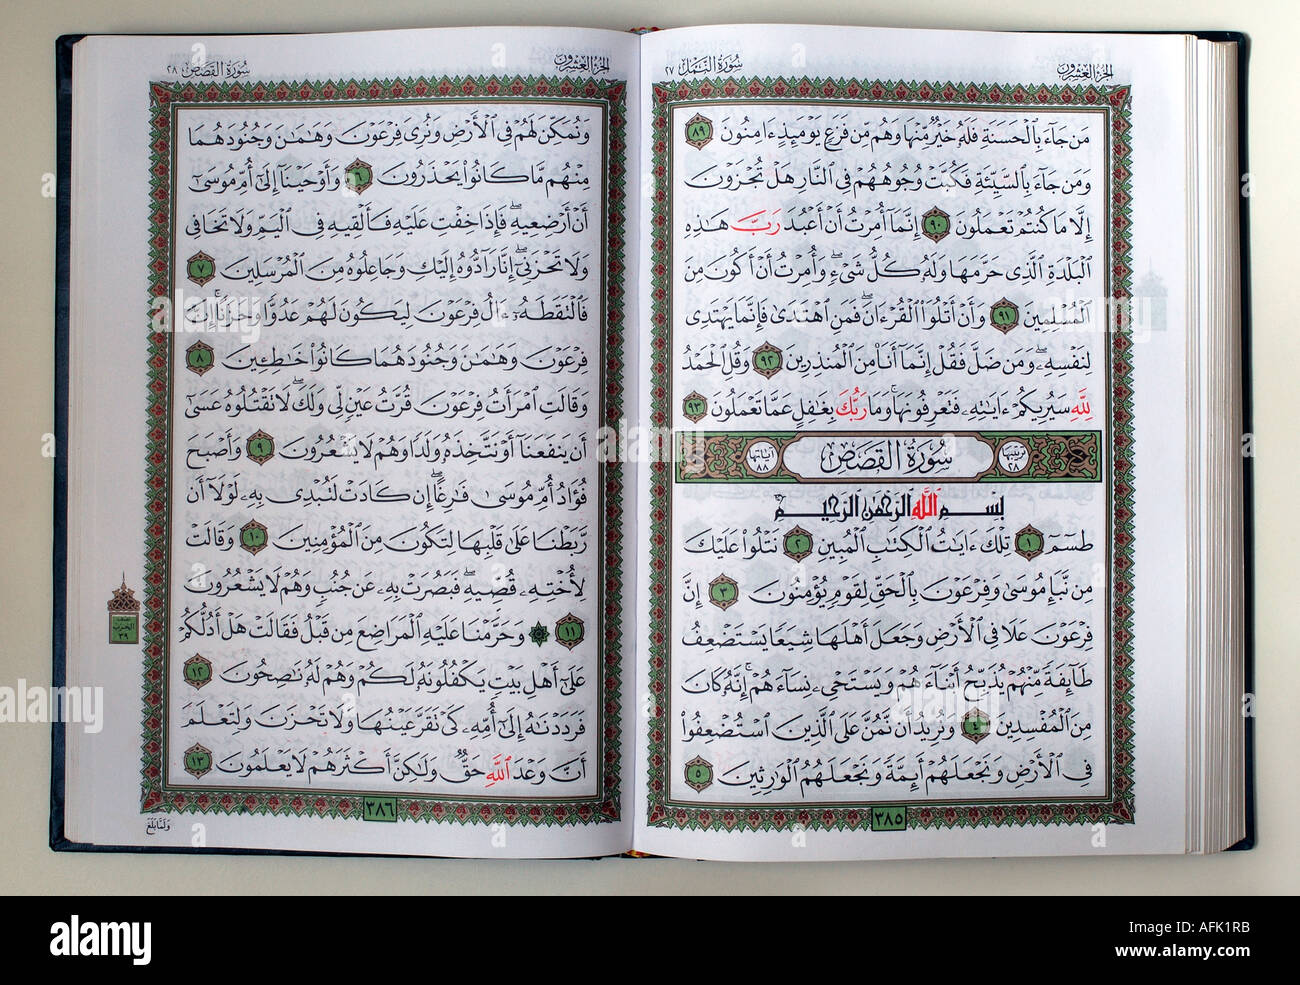 الجزء العشرون
سورة النمل ٢٧
مَن جَآءَ بِٱلْحَسَنَةِ فَلَهُۥ خَيْرٌ مِّنْهَا وَهُم مِّن فَزَعٍ يَوْمَئِذٍ ءَامِنُونَ ٨٩
وَمَن جَآءَ بِٱلسَّيِّئَةِ فَكُبَّتْ وُجُوهُهُمْ فِى ٱلنَّارِ هَلْ تُجْزَوْنَ
إِلَّا مَا كُنتُمْ تَعْمَلُونَ ٩٠ إِنَّمَآ أُمِرْتُ أَنْ أَعْبُدَ رَبَّ هَٰذِهِ
ٱلْبَلْدَةِ ٱلَّذِى حَرَّمَهَا وَلَهُۥ كُلُّ شَىْءٍ وَأُمِرْتُ أَنْ أَكُونَ مِنَ
ٱلْمُسْلِمِينَ ٩١ وَأَنْ أَتْلُوَا۟ ٱلْقُرْءَانَ فَمَنِ ٱهْتَدَىٰ فَإِنَّمَا يَهْتَدِى
لِنَفْسِهِۦ وَمَن ضَلَّ فَقُلْ إِنَّمَآ أَنَا۠ مِنَ ٱلْمُنذِرِينَ ٩٢ وَقُلِ ٱلْحَمْدُ
لِلَّهِ سَيُرِيكُمْ ءَايَٰتِهِۦ فَتَعْرِفُونَهَا وَمَا رَبُّكَ بِغَٰفِلٍ عَمَّا تَعْمَلُونَ ٩٣
ترتيبها ٢٨ سُورَةُ القَصَصِ آياتها ٨٨
بِسْمِ ٱللَّهِ ٱلرَّحْمَٰنِ ٱلرَّحِيمِ
طسٓمٓ ١ تِلْكَ ءَايَٰتُ ٱلْكِتَٰبِ ٱلْمُبِينِ ٢ نَتْلُوا۟ عَلَيْكَ
مِن نَّبَإِ مُوسَىٰ وَفِرْعَوْنَ بِٱلْحَقِّ لِقَوْمٍ يُؤْمِنُونَ ٣ إِنَّ
فِرْعَوْنَ عَلَا فِى ٱلْأَرْضِ وَجَعَلَ أَهْلَهَا شِيَعًا يَسْتَضْعِفُ
طَآئِفَةً مِّنْهُمْ يُذَبِّحُ أَبْنَآءَهُمْ وَيَسْتَحْىِۦ نِسَآءَهُمْ إِنَّهُۥ كَانَ
مِنَ ٱلْمُفْسِدِينَ ٤ وَنُرِيدُ أَن نَّمُنَّ عَلَى ٱلَّذِينَ ٱسْتُضْعِفُوا۟
فِى ٱلْأَرْضِ وَنَجْعَلَهُمْ أَئِمَّةً وَنَجْعَلَهُمُ ٱلْوَٰرِثِينَ ٥
٣٨٥
الجزء العشرون
سورة القصص ٢٨
وَنُمَكِّنَ لَهُمْ فِى ٱلْأَرْضِ وَنُرِىَ فِرْعَوْنَ وَهَٰمَٰنَ وَجُنُودَهُمَا
مِنْهُم مَّا كَانُوا۟ يَحْذَرُونَ ٦ وَأَوْحَيْنَآ إِلَىٰٓ أُمِّ مُوسَىٰٓ
أَنْ أَرْضِعِيهِ فَإِذَا خِفْتِ عَلَيْهِ فَأَلْقِيهِ فِى ٱلْيَمِّ وَلَا تَخَافِى
وَلَا تَحْزَنِىٓ إِنَّا رَآدُّوهُ إِلَيْكِ وَجَاعِلُوهُ مِنَ ٱلْمُرْسَلِينَ ٧
فَٱلْتَقَطَهُۥٓ ءَالُ فِرْعَوْنَ لِيَكُونَ لَهُمْ عَدُوًّا وَحَزَنًا إِنَّ
فِرْعَوْنَ وَهَٰمَٰنَ وَجُنُودَهُمَا كَانُوا۟ خَٰطِـِٔينَ ٨
وَقَالَتِ ٱمْرَأَتُ فِرْعَوْنَ قُرَّتُ عَيْنٍ لِّى وَلَكَ لَا تَقْتُلُوهُ عَسَىٰٓ
أَن يَنفَعَنَآ أَوْ نَتَّخِذَهُۥ وَلَدًا وَهُمْ لَا يَشْعُرُونَ ٩ وَأَصْبَحَ
فُؤَادُ أُمِّ مُوسَىٰ فَٰرِغًا إِن كَادَتْ لَتُبْدِى بِهِۦ لَوْلَآ أَن
رَّبَطْنَا عَلَىٰ قَلْبِهَا لِتَكُونَ مِنَ ٱلْمُؤْمِنِينَ ١٠ وَقَالَتْ
لِأُخْتِهِۦ قُصِّيهِ فَبَصُرَتْ بِهِۦ عَن جُنُبٍ وَهُمْ لَا يَشْعُرُونَ
١١ وَحَرَّمْنَا عَلَيْهِ ٱلْمَرَاضِعَ مِن قَبْلُ فَقَالَتْ هَلْ أَدُلُّكُمْ
عَلَىٰٓ أَهْلِ بَيْتٍ يَكْفُلُونَهُۥ لَكُمْ وَهُمْ لَهُۥ نَٰصِحُونَ ١٢
فَرَدَدْنَٰهُ إِلَىٰٓ أُمِّهِۦ كَىْ تَقَرَّ عَيْنُهَا وَلَا تَحْزَنَ وَلِتَعْلَمَ
أَنَّ وَعْدَ ٱللَّهِ حَقٌّ وَلَٰكِنَّ أَكْثَرَهُمْ لَا يَعْلَمُونَ ١٣
نصف
الحزب
٣٩
٣٨٦
وَلَمَّا بَلَغَ
alamy
Image ID: AFK1RB
www.alamy.com